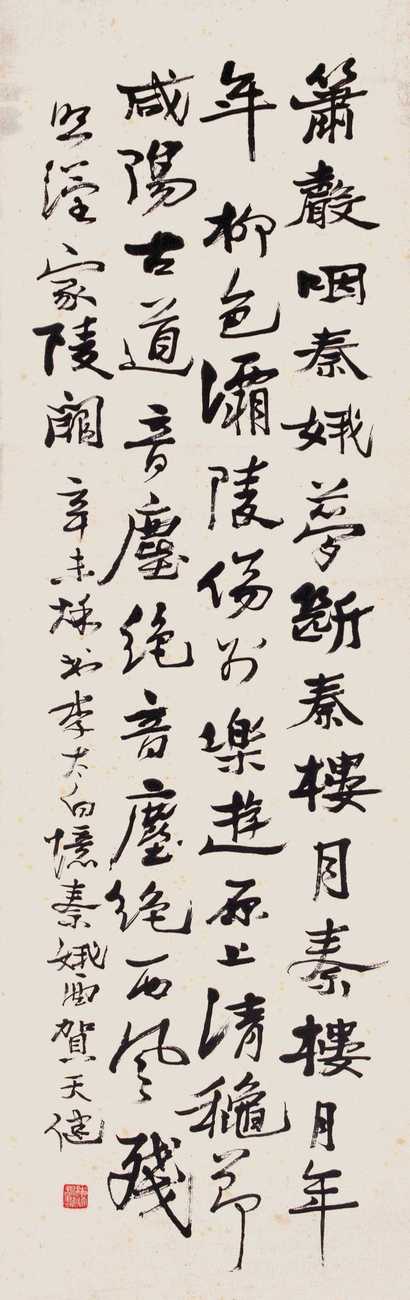 簫聲咽秦娥夢斷秦樓月秦樓月年
年柳色灞陵傷別樂遊原上清龝節
咸陽古道音塵絕音塵絕西風殘
照漢家陵闕 辛未秋書李太白憶秦娥 賀天健